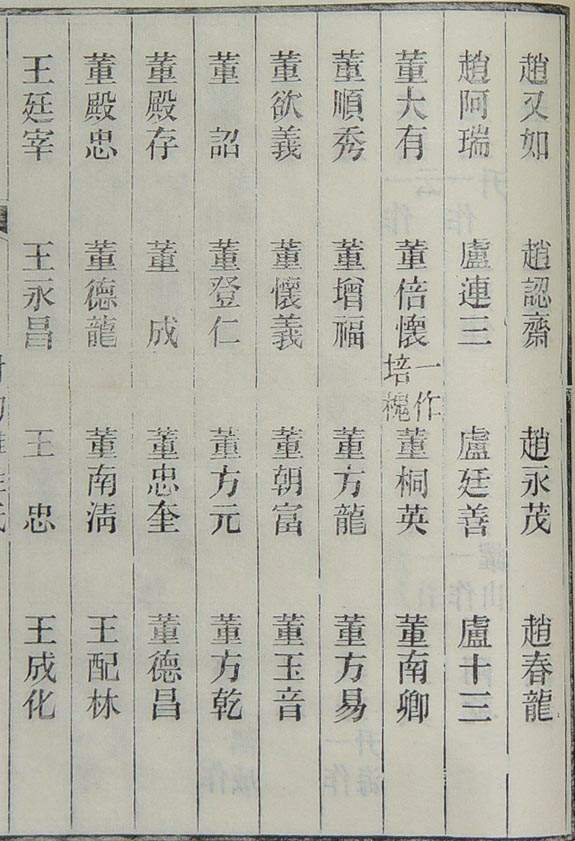 趙又如 趙認齋 趙永茂 趙春龍
趙阿瑞 盧連三 盧廷善 盧十三
董大有 董倍懷 一作培槐 董桐英 董南卿
董順秀 董增福 董方龍 董方易
董欲義 董懷義 董朝富 董玉音
董詔 董登仁 董方元 董方乾
董殿存 董成 董忠奎 董德昌
董殿忠 董德龍 董南淸 王配林
王廷宰 王永昌 王忠 王成化